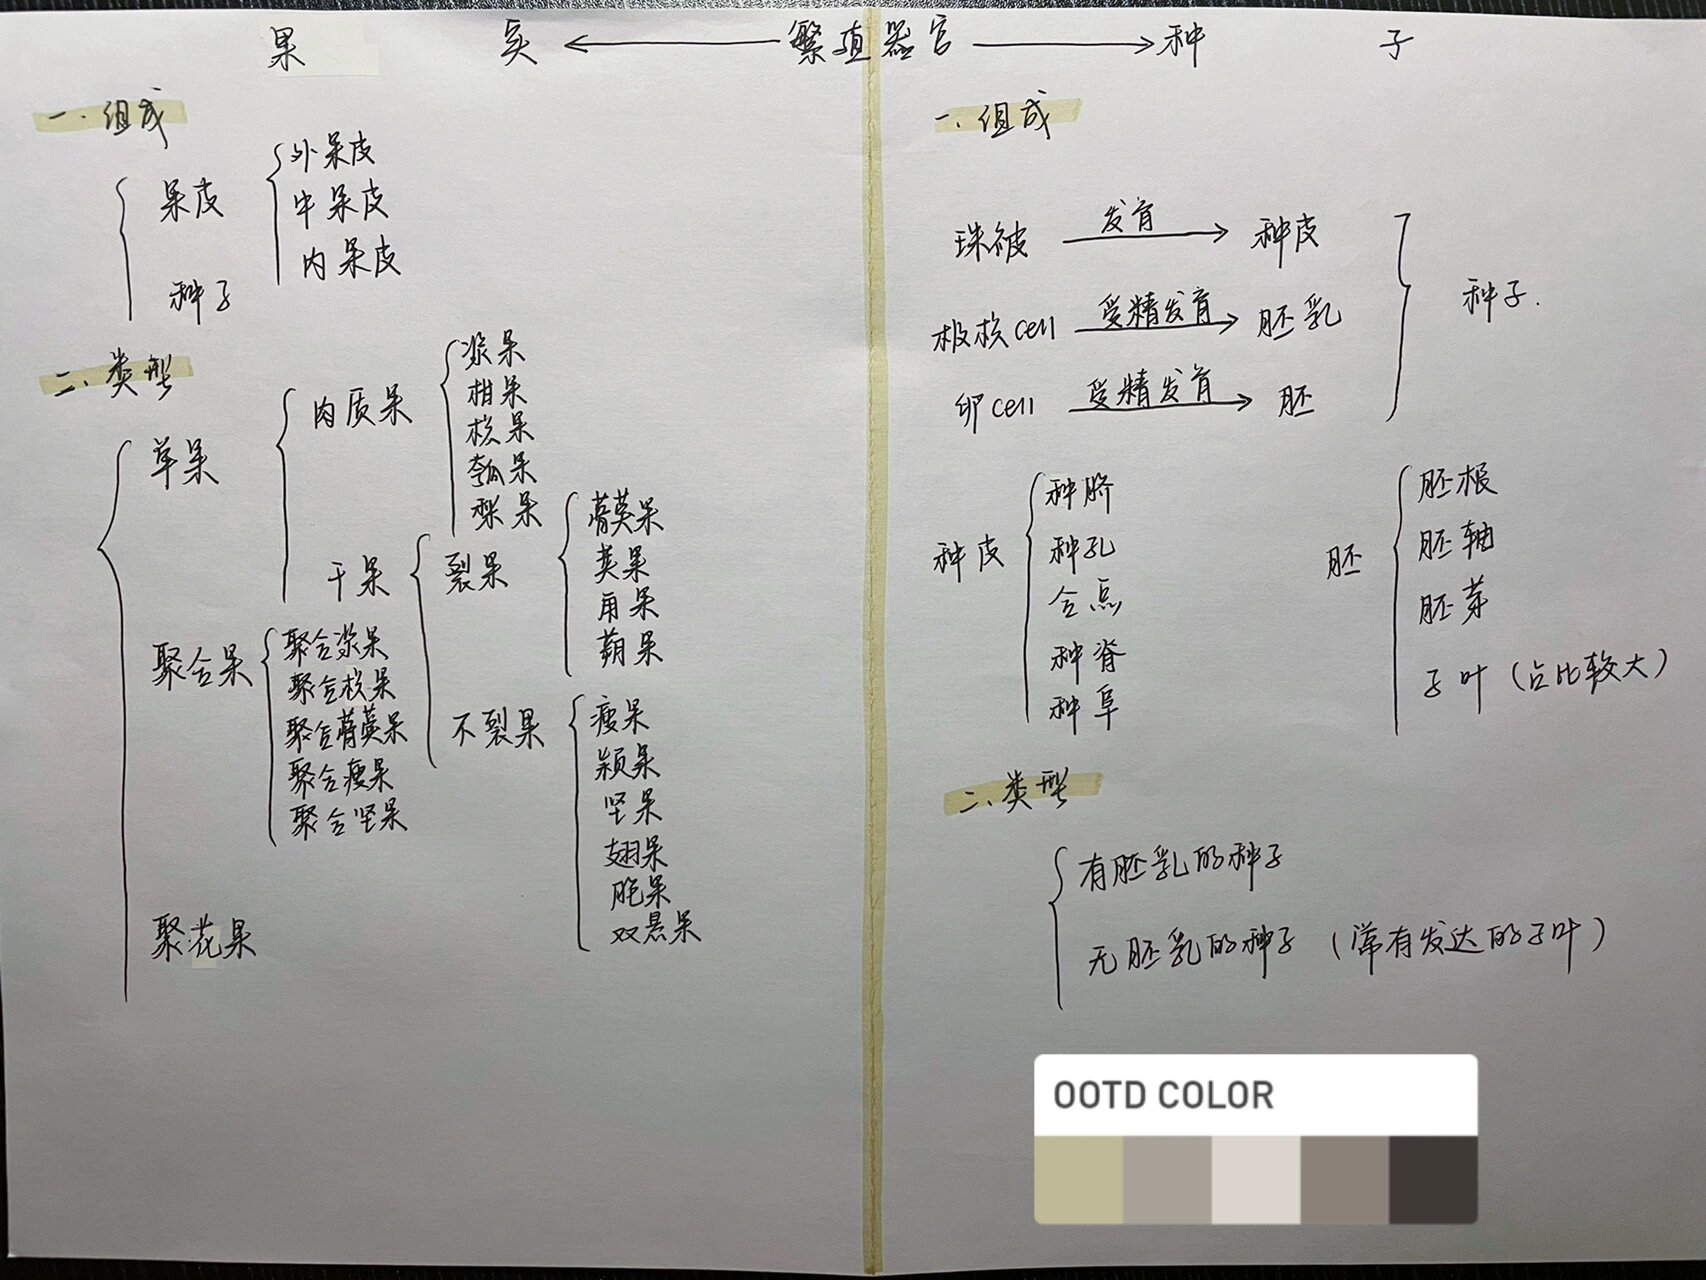 果 实 ← 繁殖器官 → 种 子
一.组成
果皮
外果皮
中果皮
内果皮
种子
二.类型
单果
肉质果
浆果
柑果
核果
瓠果
梨果
干果
裂果
蓇葖果
荚果
角果
蒴果
不裂果
瘦果
颖果
坚果
翅果
胞果
双悬果
聚合果
聚合浆果
聚合核果
聚合蓇葖果
聚合瘦果
聚合坚果
聚花果
一.组成
珠被 发育 → 种皮
极核cell 受精发育 → 胚乳
卵cell 受精发育 → 胚
种子.
种皮
种脐
种孔
合点
种脊
种阜
胚
胚根
胚轴
胚芽
子叶(占比较大)
二.类型
有胚乳的种子
无胚乳的种子(常有发达的子叶)
OOTD COLOR